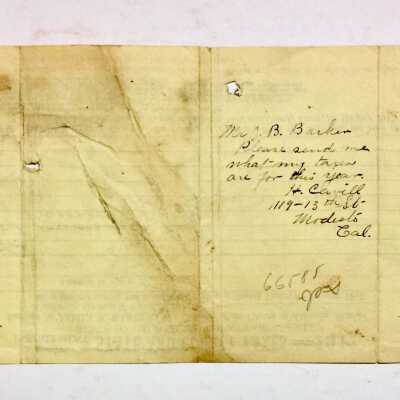 Mr J. B. Barker
Please send me
what my taxes
are for this year.
H. Cavill
119-13th St-
Modesto
Cal.
66585